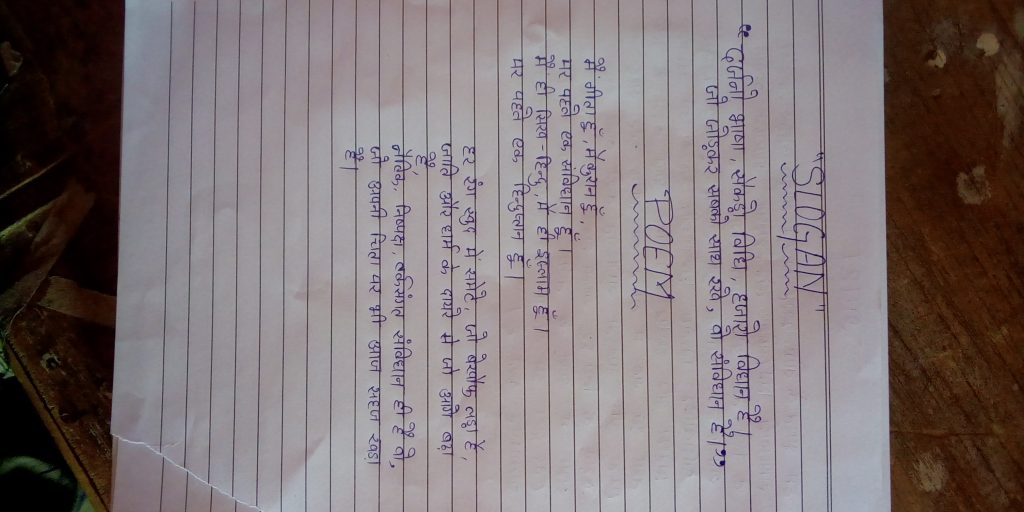 "SLOGAN"
"दुर्जनो भाषा, सेकड़ो विधि हजारो विधान है।
जो जोड़कर सबको साथ रखे, वो संविधान है।"
"POEM"
मैं गीता हूँ, मैं कुरान हूँ,
पर पहले एक संविधान हूँ।
मैं ही सिख-हिन्दू, मैं ही इस्लाम हूँ।
पर पहले एक हिन्दुस्तान हूँ।
हर रंग खुद मे समेटे, जो बेखौफ लड़ा है,
जाति और धर्म के दायरे से जो आगे बढ़ा
है,
नैतिक, निष्पक्ष, संविधान ही है वो,
जो अपनी पर भी आज खड़ा
है।